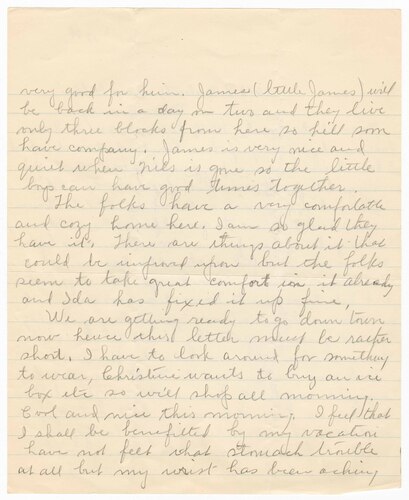 very good for him. James (little James) will
be back in a day or two and they live
only three blocks from here so he'll soon
have company. James is very nice and
quiet when Nils is gone so the little
boys can have good times together.
The folks have a very comfortable
and cozy home here. I am so glad they
have it. There are things about it that
could be improved upon but the folks
seem to take great comfort in it already
and Ida has fixed it up fine.
We are getting ready to go down town
now hence this letter must be rather
short. I have to look around for something
to wear, Christine wants to buy an ice
box etc so will shop all morning.
Cool and nice this morning. I feel that
I shall be benefitted by my vacation
have not felt what stomach trouble
at all but my wrist has been aching